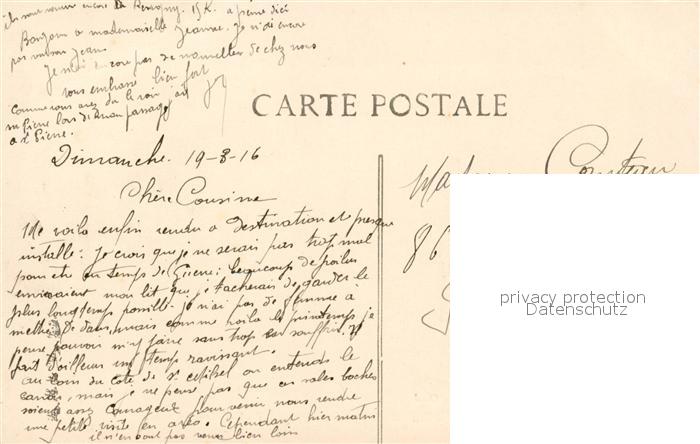 encore de 15 K. a peine d'ici
Bonjour a mademoiselle Jeanne. Je n'ai encore
pas vu son Jean
Je n'ai encore pas de nouvelles de chez nous
vous embrasse bien fort
comme vous avez du le voir
Pierre lors de mon passage
a St Pierre.
CARTE POSTALE
Dimanche. 19-3-16
Chère Cousine
Me voila enfin rendu a destination et presque
installé. Je crois que je ne serais pas trop mal
pour être en temps de Guerre; beaucoup de poilus
envieraient mon lit que je tacherais de garder le
plus longtemps possible. Je n'ai pas de plume à
mettre dedans, mais comme voila le printemps je
pense pouvoir m'y faire sans trop en souffrir. Il
fait d'ailleurs un temps ravissant.
au loin du coté de St Mihiel on entends le
canon, mais je ne pense pas que ces sales boches
soient assez courageux pour venir nous rendre
une petite visite en avion. Cependant hier matin
ils n'en sont pas venus bien loin
Madame
86
privacy protection
Datenschutz